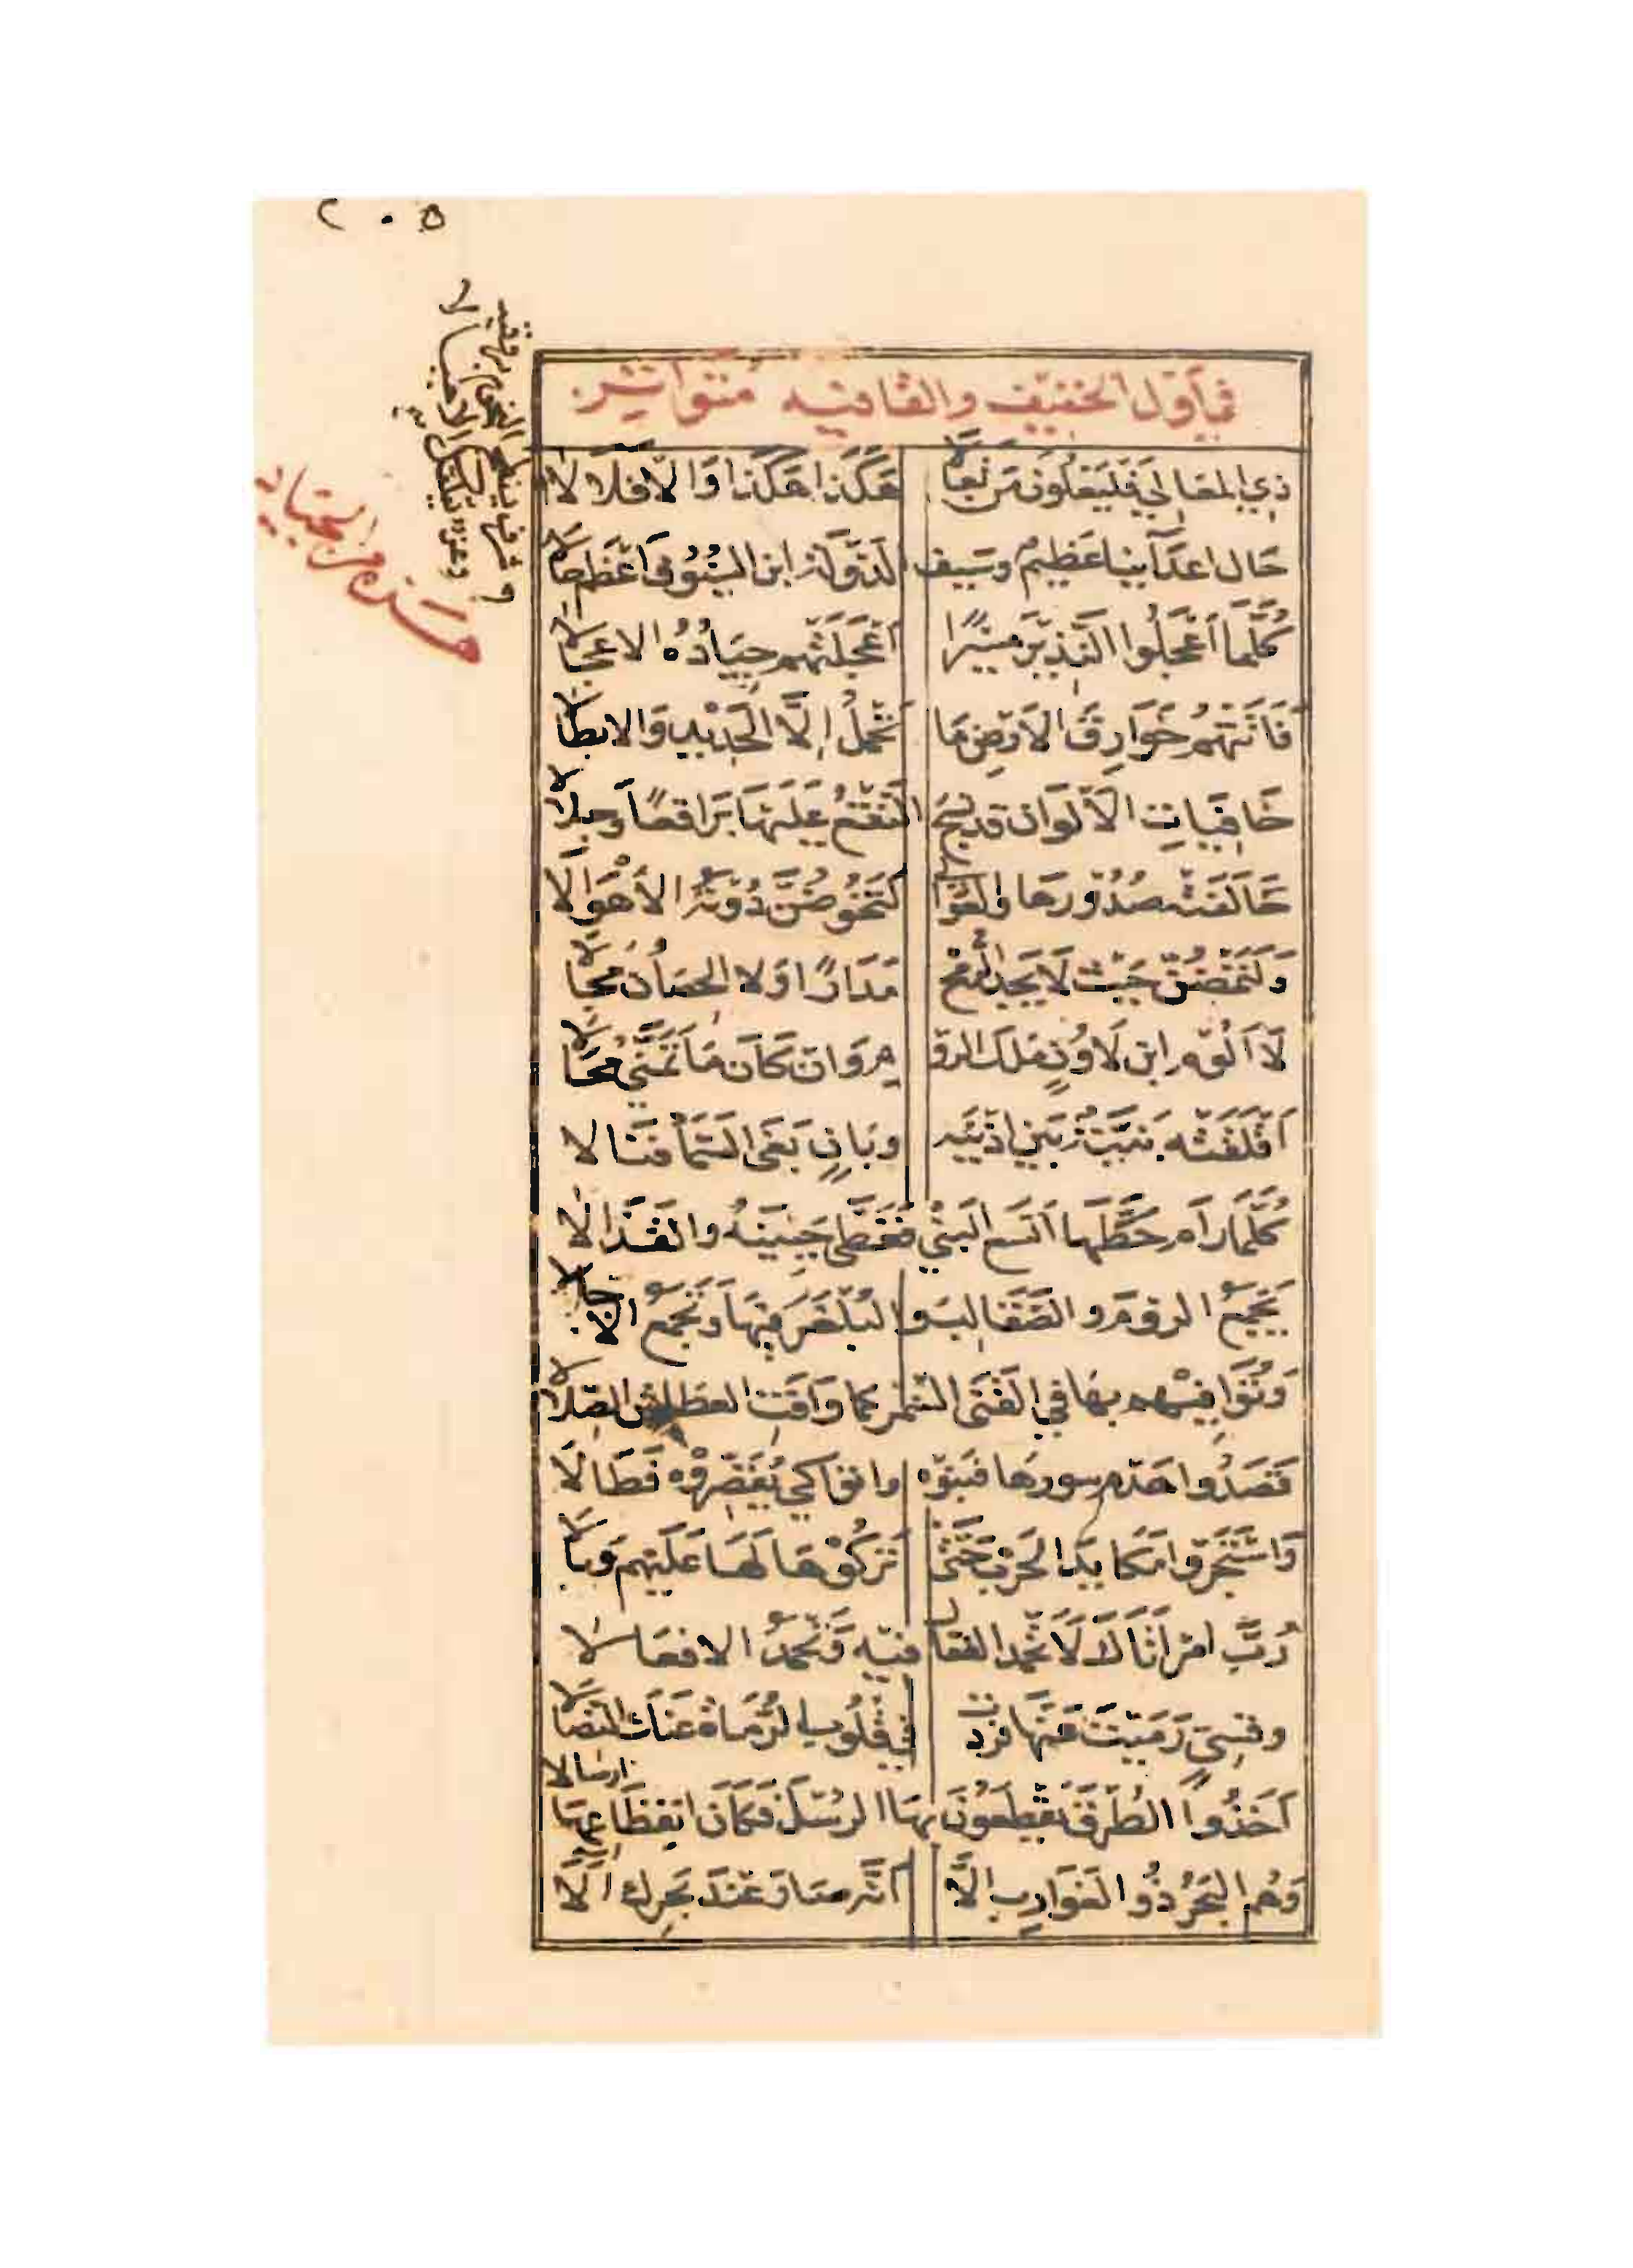 ٢٠٥
في أول الخفيف والقافيه متواتر
ذي المعالي فليعلون من تعالى هكذا هكذا وَالّا فلَا لَا
حَال اعدَآئنا عَظيم وسَيف الدّولَة ابن السُّيُوف أعْظم حَالا
كُلَّمَا أعْجَلُوا النَّذيرَ مَسيرًا أعْجَلَتْهم جِيَادُهُ الاعجَالا
فَاتَتْهُم خَوَارِقَ الاَرْضِ مَا تَحْملُ إلَّا الحَدِيْد وَالابطَالا
خَافِيَاتِ الألْوَان قد نسَجَ النّقْعُ عَلَيْهَا بَرَاقعًا وجلالا
حَالَفتْه صُدُورهَا والعَوَالي لَتَخُوضُنَّ دُونَهُ الأهْوَالا
وَلَتَمْضُنَّ حَيْث لَا يَجد الرُّمْح مَدَارًا وَلا الحصَانُ مجَالا
لَا ألُوم ابن لَاوُنٍ مَلك الرّوم وَان كَان مَا تَمَنَّى مُحَالا
أقْلَقَتْه بَنيَّة بَيْن اذْنَيْه وبَانٍ بَغَى السَّمَآ فَنَالا
كُلَّمَا رَام حَطَّهَا اتسَع البَنْيُ فَغَطَّى جَبِيْنَهُ والقَذَالا
يَجْمَعُ الرومَ والصَّقَالبَ والبُلْغَرَ فِيْهَا وَتجْمَعُ الآجَالا
وَتُوَافِيْهم بهَا في القَنَى السُّمْر كمَا وَافَتِ العطَاش الصّلالا
قَصَدُوا هَدْم سورهَا فبَنَوْه واتوْا كي يُقَصِّرُوْه فَطَالَا
وَاسْتَجَرُّوا مَكَايدَ الحَرْب حَتَّى تَرَكُوْهَا لَهَا عَلَيْهم وَبَالا
رُبَّ امْرٍ أتَاكَ لَا تَحْمد الفعَّال فيْه وَتَحْمدُ الافعَالا
وقِسِيٍّ رُمِيْتَ عَنْهَا فردت في قُلُوب الرُّمَاةِ عَنكَ النِّصَالا
أخَذُوا الطُّرْقَ يَقْطَعُوْنَ بهَا الرُّسْلَ فكَانَ انقطَاعهَا ارسَالا
وَهُم البَحْرُ ذُو الغَوَارِب الَّا أنَّه صَار عنْدَ بَحرِك آلَا